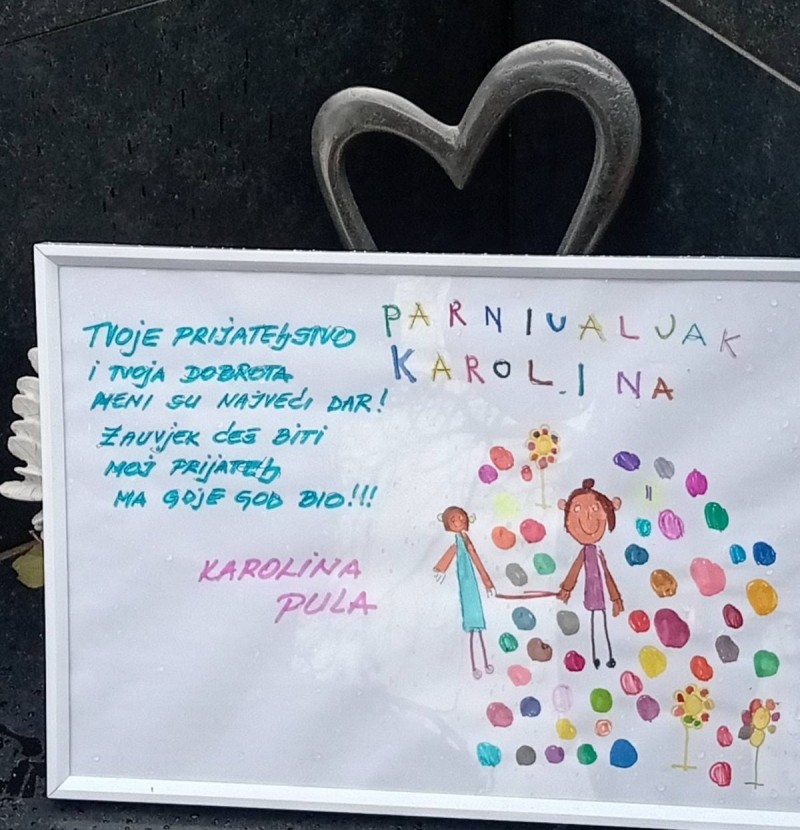 TVOJE PRIJATEljSTVO
i TVOJA DOBROTA
MENI SU NAJVEĆI DAR!
ŽAUVJEK ĆEŠ BITI
MOJ PRIJATElj
MA GDJE GOD BIO!!!
KAROLINA
PULA
PARNIVALJAK
KAROLINA